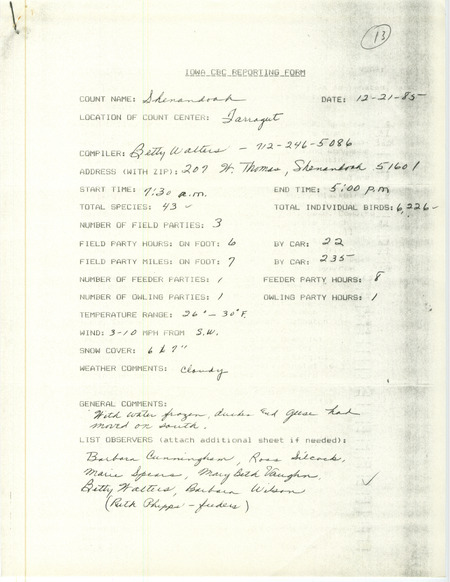 13
IOWA CBC REPORTING FORM
COUNT NAME: Shenandoah DATE: 12-21-85
LOCATION OF COUNT CENTER: Farragut
COMPILER: Betty Walters - 712-246-5086
ADDRESS (WITH ZIP): 207 W. Thomas, Shenandoah 51601
START TIME: 7:30 a.m. END TIME: 5:00 p.m
TOTAL SPECIES: 43 TOTAL INDIVIDUAL BIRDS: 6,226
NUMBER OF FIELD PARTIES: 3
FIELD PARTY HOURS: ON FOOT: 6 BY CAR: 22
FIELD PARTY MILES: ON FOOT: 7 BY CAR: 235
NUMBER OF FEEDER PARTIES: 1 FEEDER PARTY HOURS: 8
NUMBER OF OWLING PARTIES: 1 OWLING PARTY HOURS: 1
TEMPERATURE RANGE: 26° - 30° F.
WIND: 3-10 MPH FROM S.W.
SNOW COVER: 6 to 7"
WEATHER COMMENTS: cloudy
GENERAL COMMENTS:
With water frozen, ducks and geese had
moved on south.
LIST OBSERVERS (attach additional sheet if needded):
Barbara Cunningham, Ross Silcock,
Marie Spears, Mary Beth Vaughn,
Betty Walters, Barbara Wilson
(Ruth Phipps - feeders)